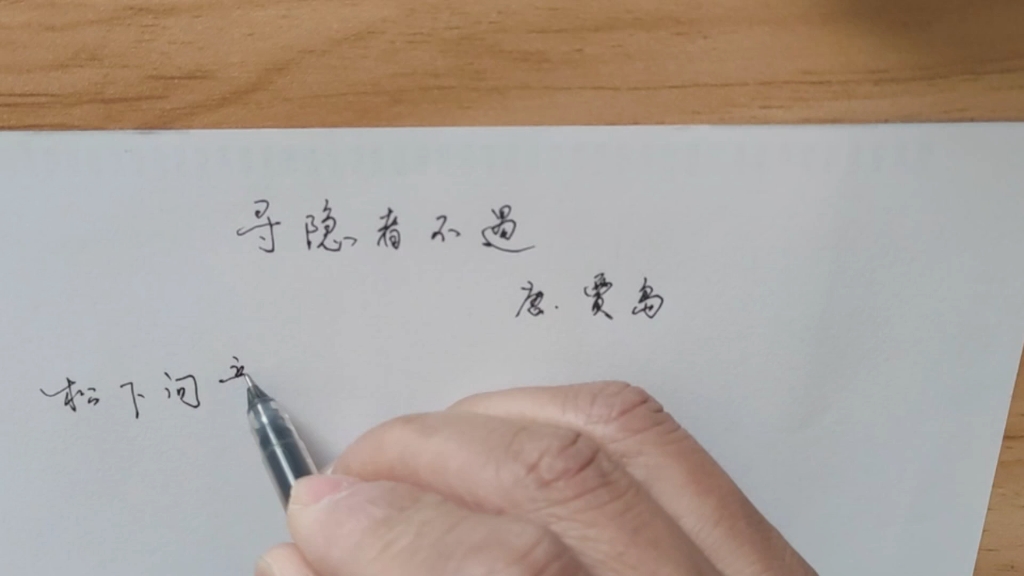 寻隐者不遇
唐·贾岛
松下问